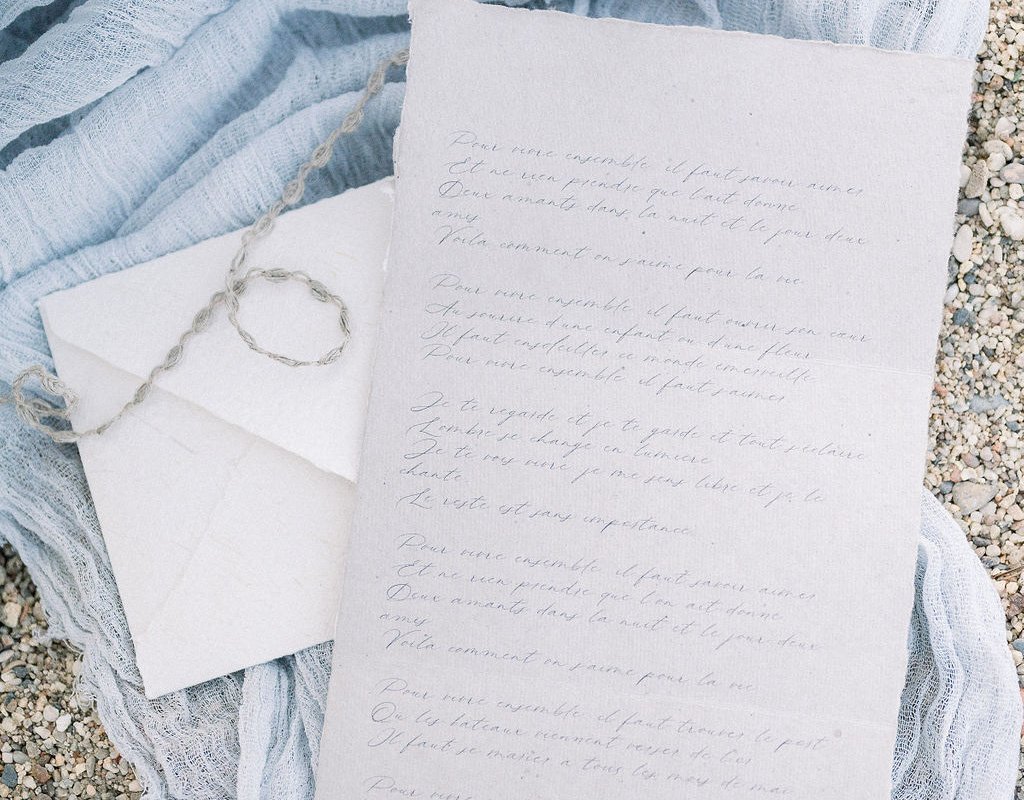 Pour vivre ensemble il faut savoir aimer
Et ne rien prendre que l'ait donne
Deux amants dans la nuit et le jour deux
amis
Voila comment on s'aime pour la vie
Pour vivre ensemble il faut ouvrir son cœur
Au sourire d'une enfant ou d'une fleur
Il faut ensoleiller ce monde emerveille
Pour vivre ensemble il faut s'aimer
Je te regarde et je te garde et tout s'eclaire
L'ombre se change en lumiere
Je te vois vivre je me sens libre et je le
chante
Le reste est sans importance
Pour vivre ensemble il faut savoir aimer
Et ne rien prendre que l'on ait donne
Deux amants dans la nuit et le jour deux
amis
Voila comment on s'aime pour la vie
Pour vivre ensemble il faut trouver le port
Ou les bateaux viennent verser de l'or
Il faut se marier a tous les mois de mai
Pour vivre